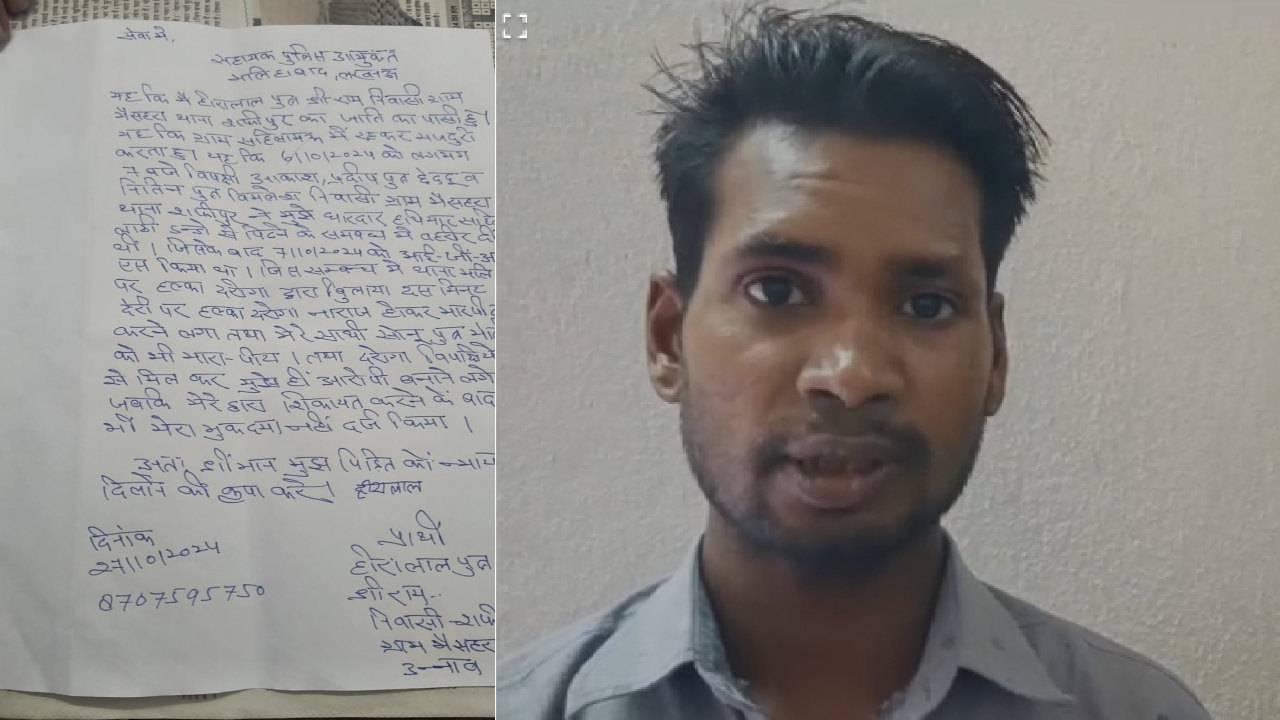 सेवा मे,
सहायक पुलिस आयुक्त
मलिहाबाद लखनऊ
यह कि मै हीरालाल पुत्र श्री राम निवासी ग्राम
भैसहरा थाना का जाति का पासी हूं।
यह कि ग्राम मे रहकर मजदूरी
करता हूं। यह कि 6/10/2024 को लगभग
7 बजे विपक्षी आकाश, प्रदीप पुत्र व
नितिन पुत्र विमलेश निवासी ग्राम भैसहरा
थाना ने मुझे धारदार हथियार
लाठी डन्डो से पिटने के सम्बन्ध मे तहरीर दी
थी। जिसके बाद 7/10/2024 को आई-जी-
एस किया था। जिस सम्बन्ध मे थाना
पर हल्का दरोगा द्वारा बुलाया दस मिनट
देरी पर हल्का दरोगा नाराज होकर मारपीट
करने लगा तथा मेरे साथी सोनू पुत्र
को भी मारा-पीटा। तथा दरोगा
से मिल कर मुझे ही आरोपी बनाने लगे
जबकि मेरे द्वारा शिकायत करने के बाद
भी मेरा मुकदमा नहीं दर्ज किया।
अतः श्रीमान मुझ पिडित को न्याय
दिलाने की कृपा करे। हीरालाल
दिनांक
27/10/2024
8707595750
प्रार्थी
हीरालाल पुत्र
श्री राम
निवासी
ग्राम भैसहर
उन्नाव